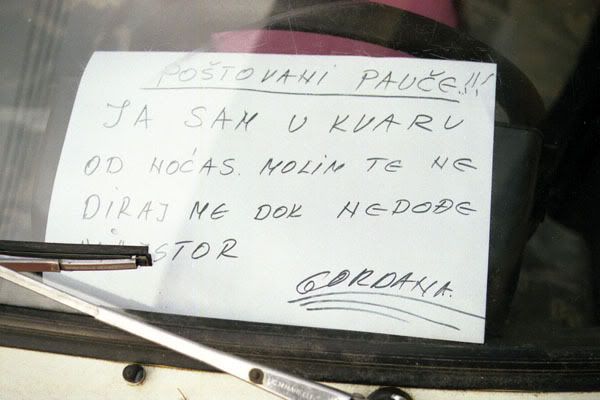 POŠTOVANI PAUČE!!!
JA SAM U KVARU
OD NOĆAS. MOLIM TE NE
DIRAJ ME DOK NEDOĐE
STOR
GORDANA.